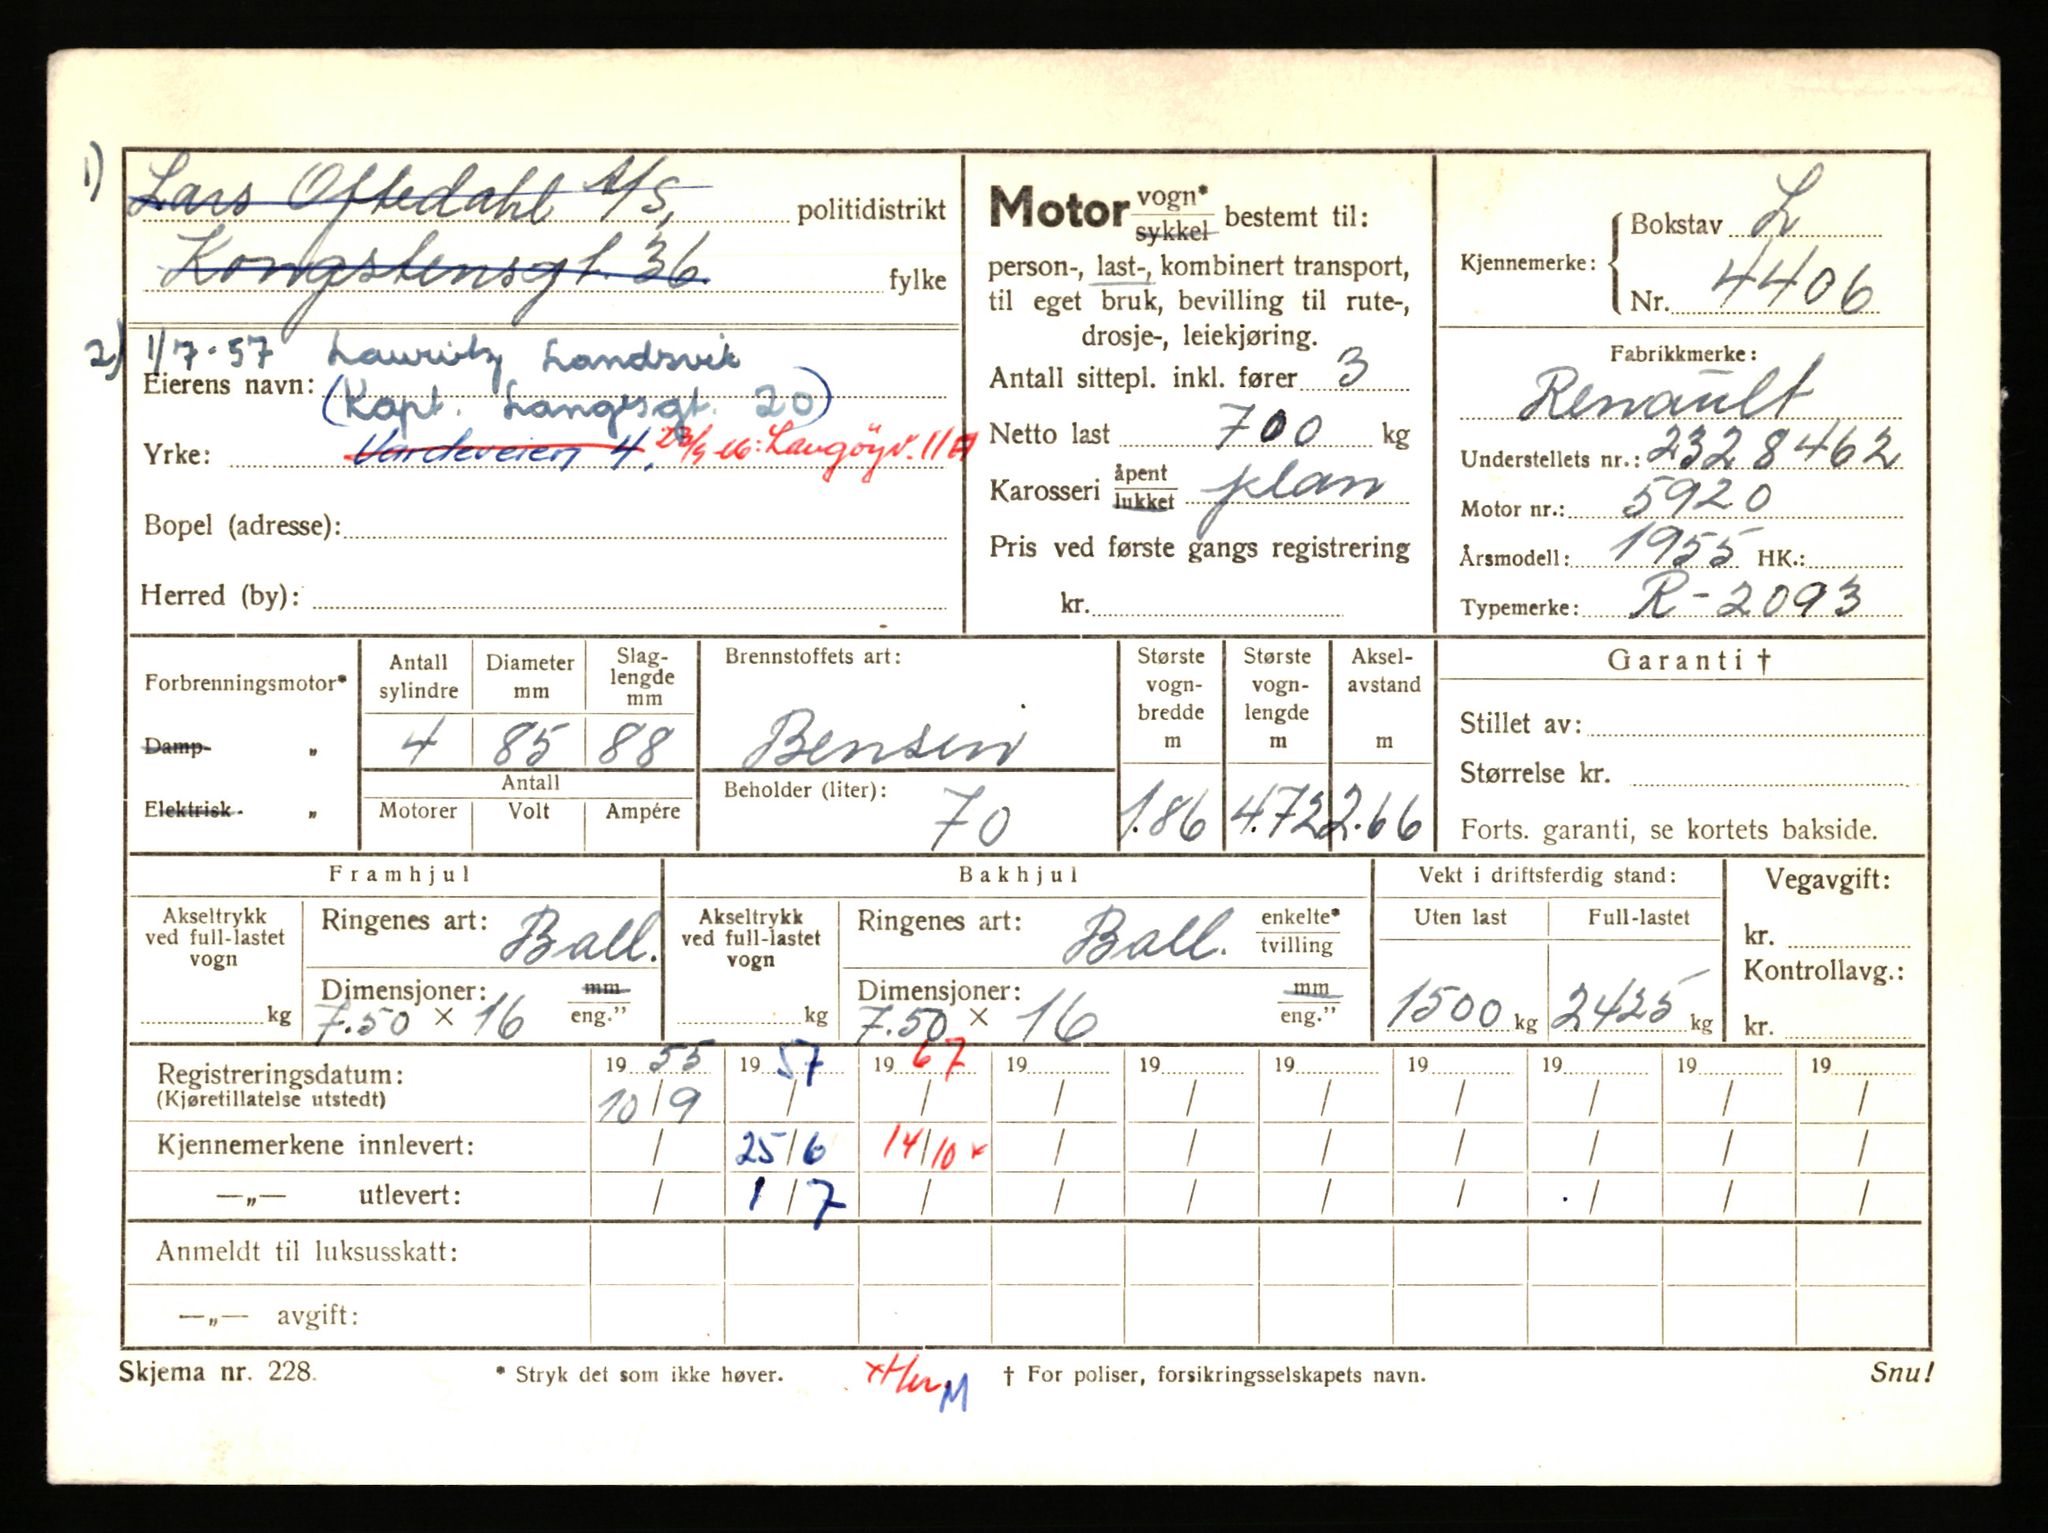 1) Lars Oftedahl A/S, politidistrikt
Kongstensgt. 36 fylke
2) 1/7-57 Lauritz Landsvik
Eierens navn: (Kapt. Langesgt. 20)
Yrke: Vardeveien 4, : Langøyv. 11
Bopel (adresse):
Herred (by):
Motor vogn* sykkel bestemt til:
person-, last-, kombinert transport,
til eget bruk, bevilling til rute-,
drosje-, leiekjøring.
Antall sittepl. inkl. fører 3
Netto last 700 kg
Karosseri åpent lukket plan
Pris ved første gangs registrering
kr.
Kjennemerke: Bokstav L
Nr. 4406
Fabrikkmerke:
Renault
Understellets nr.: 2328462
Motor nr.: 5920
Årsmodell: 1955 HK.:
Typemerke: R-2093
Forbrenningsmotor*
Damp- „
Elektrisk- „
Antall sylindre
4
Diameter mm
85
Slag-
lengde
mm
88
Antall
Motorer Volt Ampére
Brennstoffets art:
Bensin
Beholder (liter):
70
Største
vogn-
bredde
m
1.86
Største
vogn-
lengde
m
4.72
Aksel-
avstand
m
2.66
Garanti †
Stillet av:
Størrelse kr.
Forts. garanti, se kortets bakside.
Framhjul
Akseltrykk
ved full-lastet
vogn
kg
Ringenes art: Ball.
Dimensjoner: mm
7.50 × 16 eng.”
Bakhjul
Akseltrykk
ved full-lastet
vogn
kg
Ringenes art: Ball. enkelte*
tvilling
Dimensjoner: mm
7.50 × 16 eng.”
Vekt i driftsferdig stand:
Uten last Full-lastet
1500 kg 2425 kg
Vegavgift:
kr.
Kontrollavg.:
kr.
Registreringsdatum: 19 55 19 57 19 67 19 19 19 19 19 19 19
(Kjøretillatelse utstedt) 10/9 / / / / / / / / /
Kjennemerkene innlevert: / 25/6 14/10 × / / / / / / /
—„— utlevert: / 1/7 / / / / / / / /
Anmeldt til luksusskatt:
—„— avgift:
Skjema nr. 228. * Stryk det som ikke høver. † For poliser, forsikringsselskapets navn. Snu!